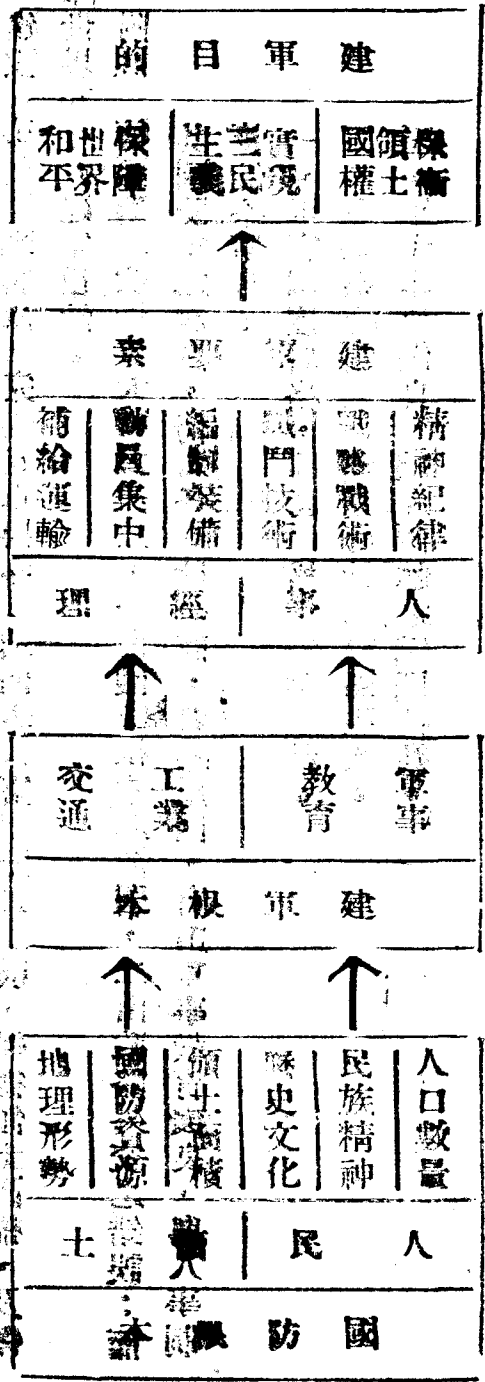 建軍目的
保衛領土國權
實現三民主義
保障世界和平
建軍要素
精神紀律
戰略戰術
戰鬥技術
編制裝備
動員集中
補給運輸
人事
經理
軍事教育
工業交通
建軍根本
人口數量
民族精神
歷史文化
領土面積
國防資源
地理形勢
人民
領土
國防根本